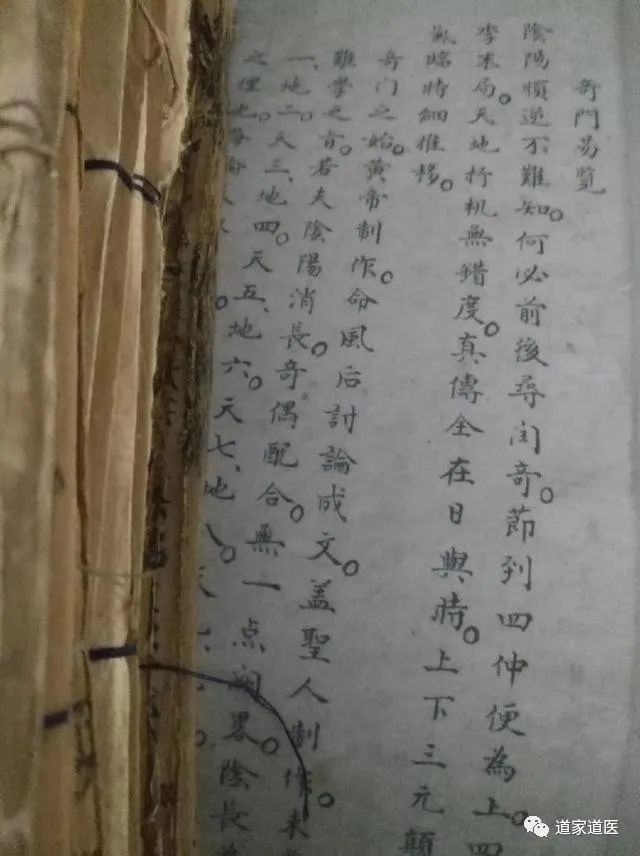 奇門易覽
陰陽順逆不難知。何必前後尋闰奇。節到四仲便為上。四
季来局。天地杼机無錯度。真傳全在日與時。上下三元顛
亂臨時細推移。
奇门之始。黄帝制作。命風后討論成文。盖聖人制作。未
難学之言。若夫陰陽消長。奇偶配合。無一点畧。陰長
一、地二。天三、地四。天五、地六。天七、地八。天
之理也
道家道医